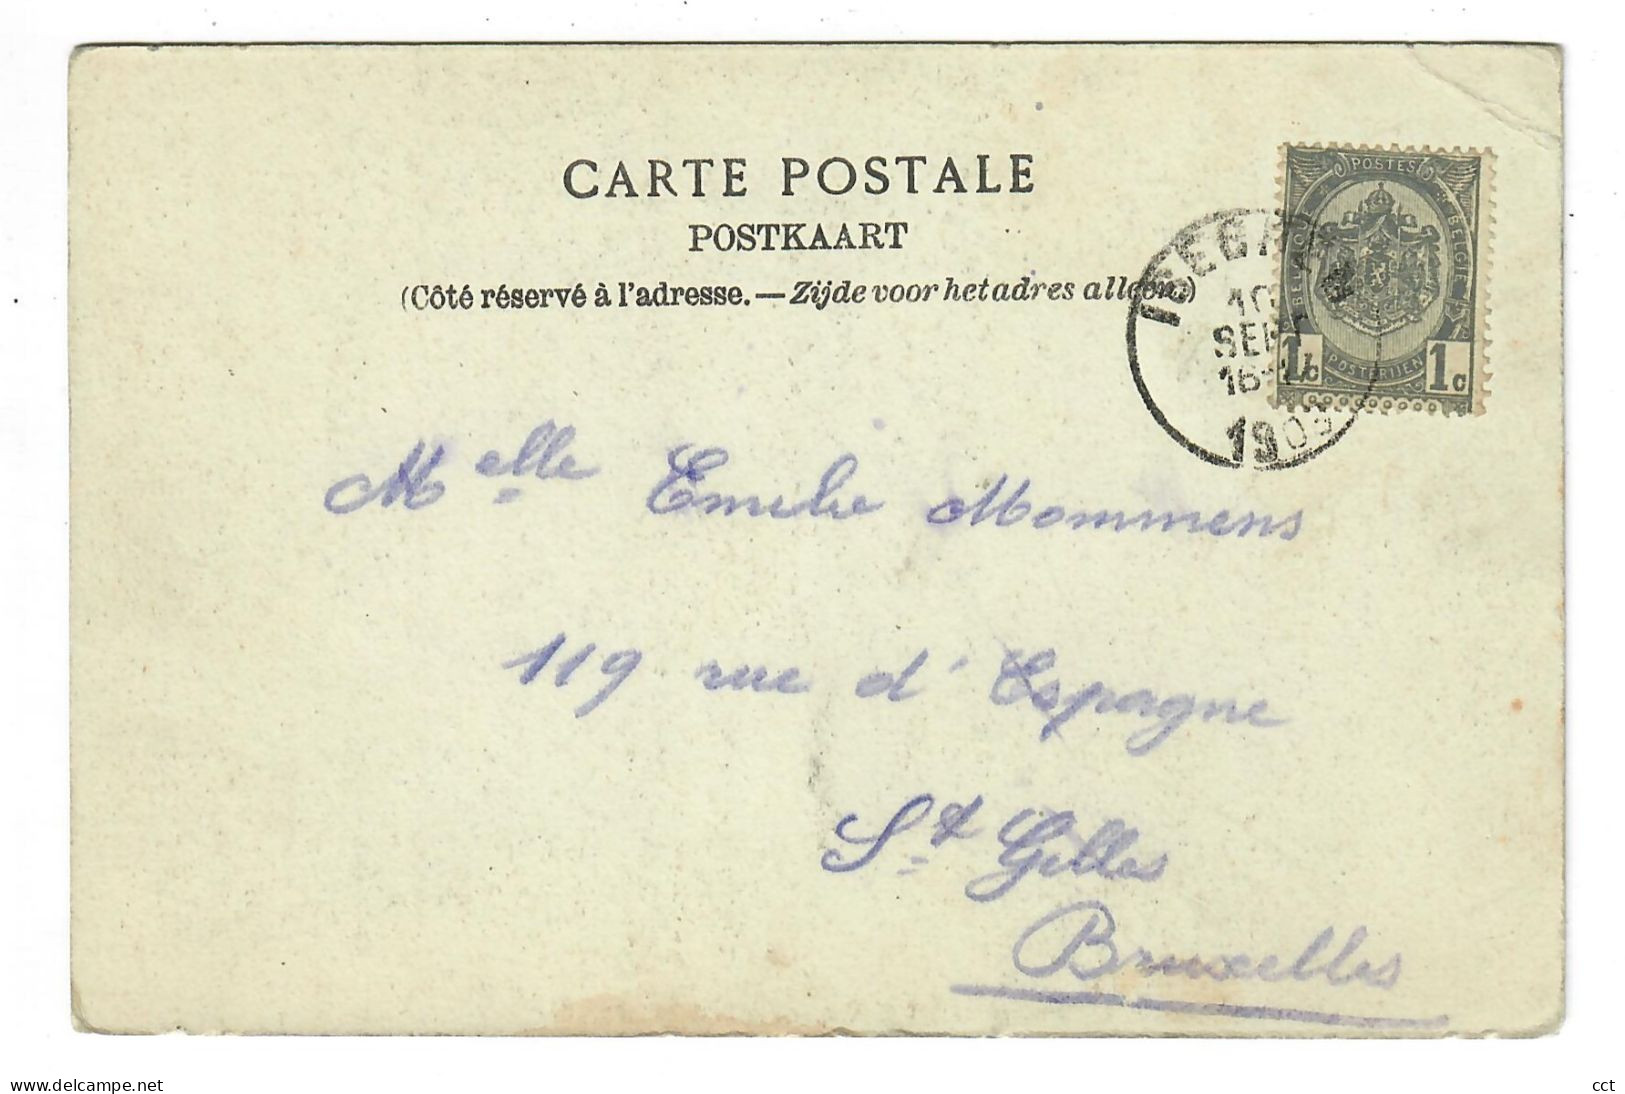 CARTE POSTALE
POSTKAART
(Côté réservé à l'adresse. — Zijde voor het adres alleen.)
POSTES
BELGIQUE
BELGIE
1c 1c
POSTERIJEN
ISEGHEM
10
SEPT
1905
Melle Emilie Mommens
119 rue d'Espagne
St Gilles
Bruxelles
www.delcampe.net
cct